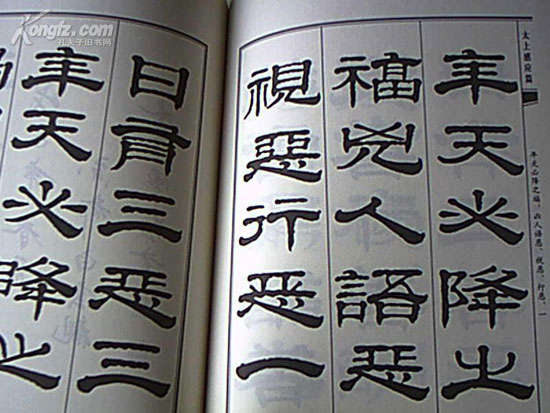 Kongfz.com
孔夫子旧书网
太上感应篇
年天必降之
福兇人語惡
視惡行惡一
年天必降之福。凶人语恶、视恶、行恶，一
日有三惡三
年天必降之